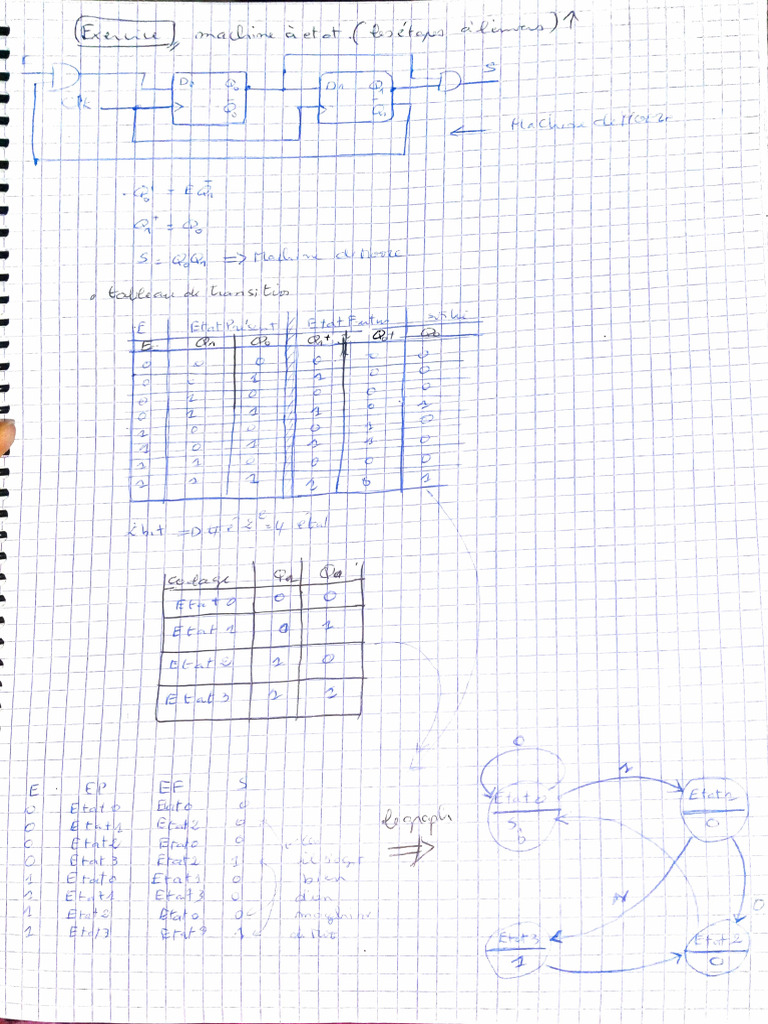 Exercice, machine à etat. (les étapes à l'invers) ↑
D0 Q0 D1 Q1 S
Clk Q̄0 Q̄1
Machine de Moore
Q0+ = E Q̄1
Q1+ = Q0
S = Q0Q1 => Machine de Moore
• tableau de transitio
E Etat Présent Etat Futur
E Q1 Q0 Q1+ Q0+
0 0 0 0 0 0
0 0 1 1 0 0
0 1 0 0 0 0
0 1 1 1 0 1
1 0 0 0 1 0
1 0 1 1 1 0
1 1 0 0 0 0
1 1 1 1 0 1
codage Q1 Q0
Etat 0 0 0
Etat 1 0 1
Etat 2 1 0
Etat 3 1 1
E EP EF S
0 Etat 0 Etat 0 0
0 Etat 1 Etat 2 0
0 Etat 2 Etat 0 0
0 Etat 3 Etat 2 1
1 Etat 0 Etat 1 0
1 Etat 1 Etat 3 0
1 Etat 2 Etat 0 0
1 Etat 3 Etat 1
bien
d'un
le graph
0
Etat 0
1
Etat 1
0
0
Etat 3
1
Etat 2
0